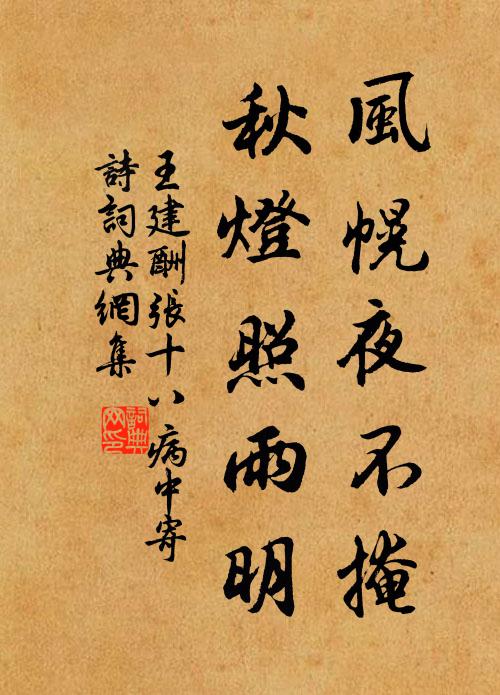 風幌夜不掩
秋燈照雨明
王建酬張十八病中寄
詩詞典網集
詞典
文印